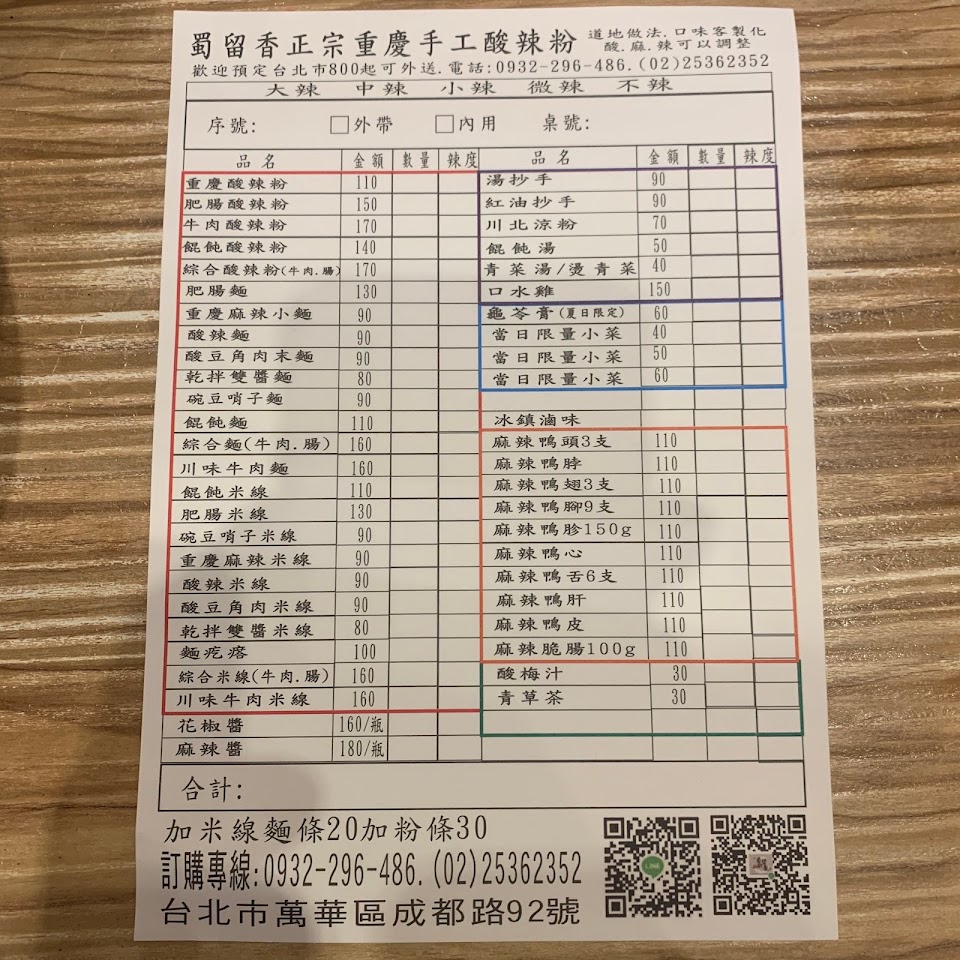 蜀留香正宗重慶手工酸辣粉 道地做法.口味客製化
酸.麻.辣可以調整
歡迎預定台北市800起可外送.電話:0932-296-486.(02)25362352
大辣 中辣 小辣 微辣 不辣
序號: 外帶 內用 桌號:
品名 金額 數量 辣度 品名 金額 數量 辣度
重慶酸辣粉 110 湯抄手 90
肥腸酸辣粉 150 紅油抄手 90
牛肉酸辣粉 170 川北涼粉 70
餛飩酸辣粉 140 餛飩湯 50
綜合酸辣粉(牛肉.腸) 170 青菜湯/燙青菜 40
肥腸麵 130 口水雞 150
重慶麻辣小麵 90 龜苓膏(夏日限定) 60
酸辣麵 90 當日限量小菜 40
酸豆角肉末麵 90 當日限量小菜 50
乾拌雙醬麵 80 當日限量小菜 60
碗豆哨子麵 90
餛飩麵 110 冰鎮滷味
綜合麵(牛肉.腸) 160 麻辣鴨頭3支 110
川味牛肉麵 160 麻辣鴨脖 110
餛飩米線 110 麻辣鴨翅3支 110
肥腸米線 130 麻辣鴨腳9支 110
碗豆哨子米線 90 麻辣鴨胗150g 110
重慶麻辣米線 90 麻辣鴨心 110
酸辣米線 90 麻辣鴨舌6支 110
酸豆角肉米線 90 麻辣鴨肝 110
乾拌雙醬米線 80 麻辣鴨皮 110
麵疙瘩 100 麻辣脆腸100g 110
綜合米線(牛肉.腸) 160 酸梅汁 30
川味牛肉米線 160 青草茶 30
花椒醬 160/瓶
麻辣醬 180/瓶
合計:
加米線麵條20加粉條30
訂購專線:0932-296-486.(02)25362352
台北市萬華區成都路92號
LINE